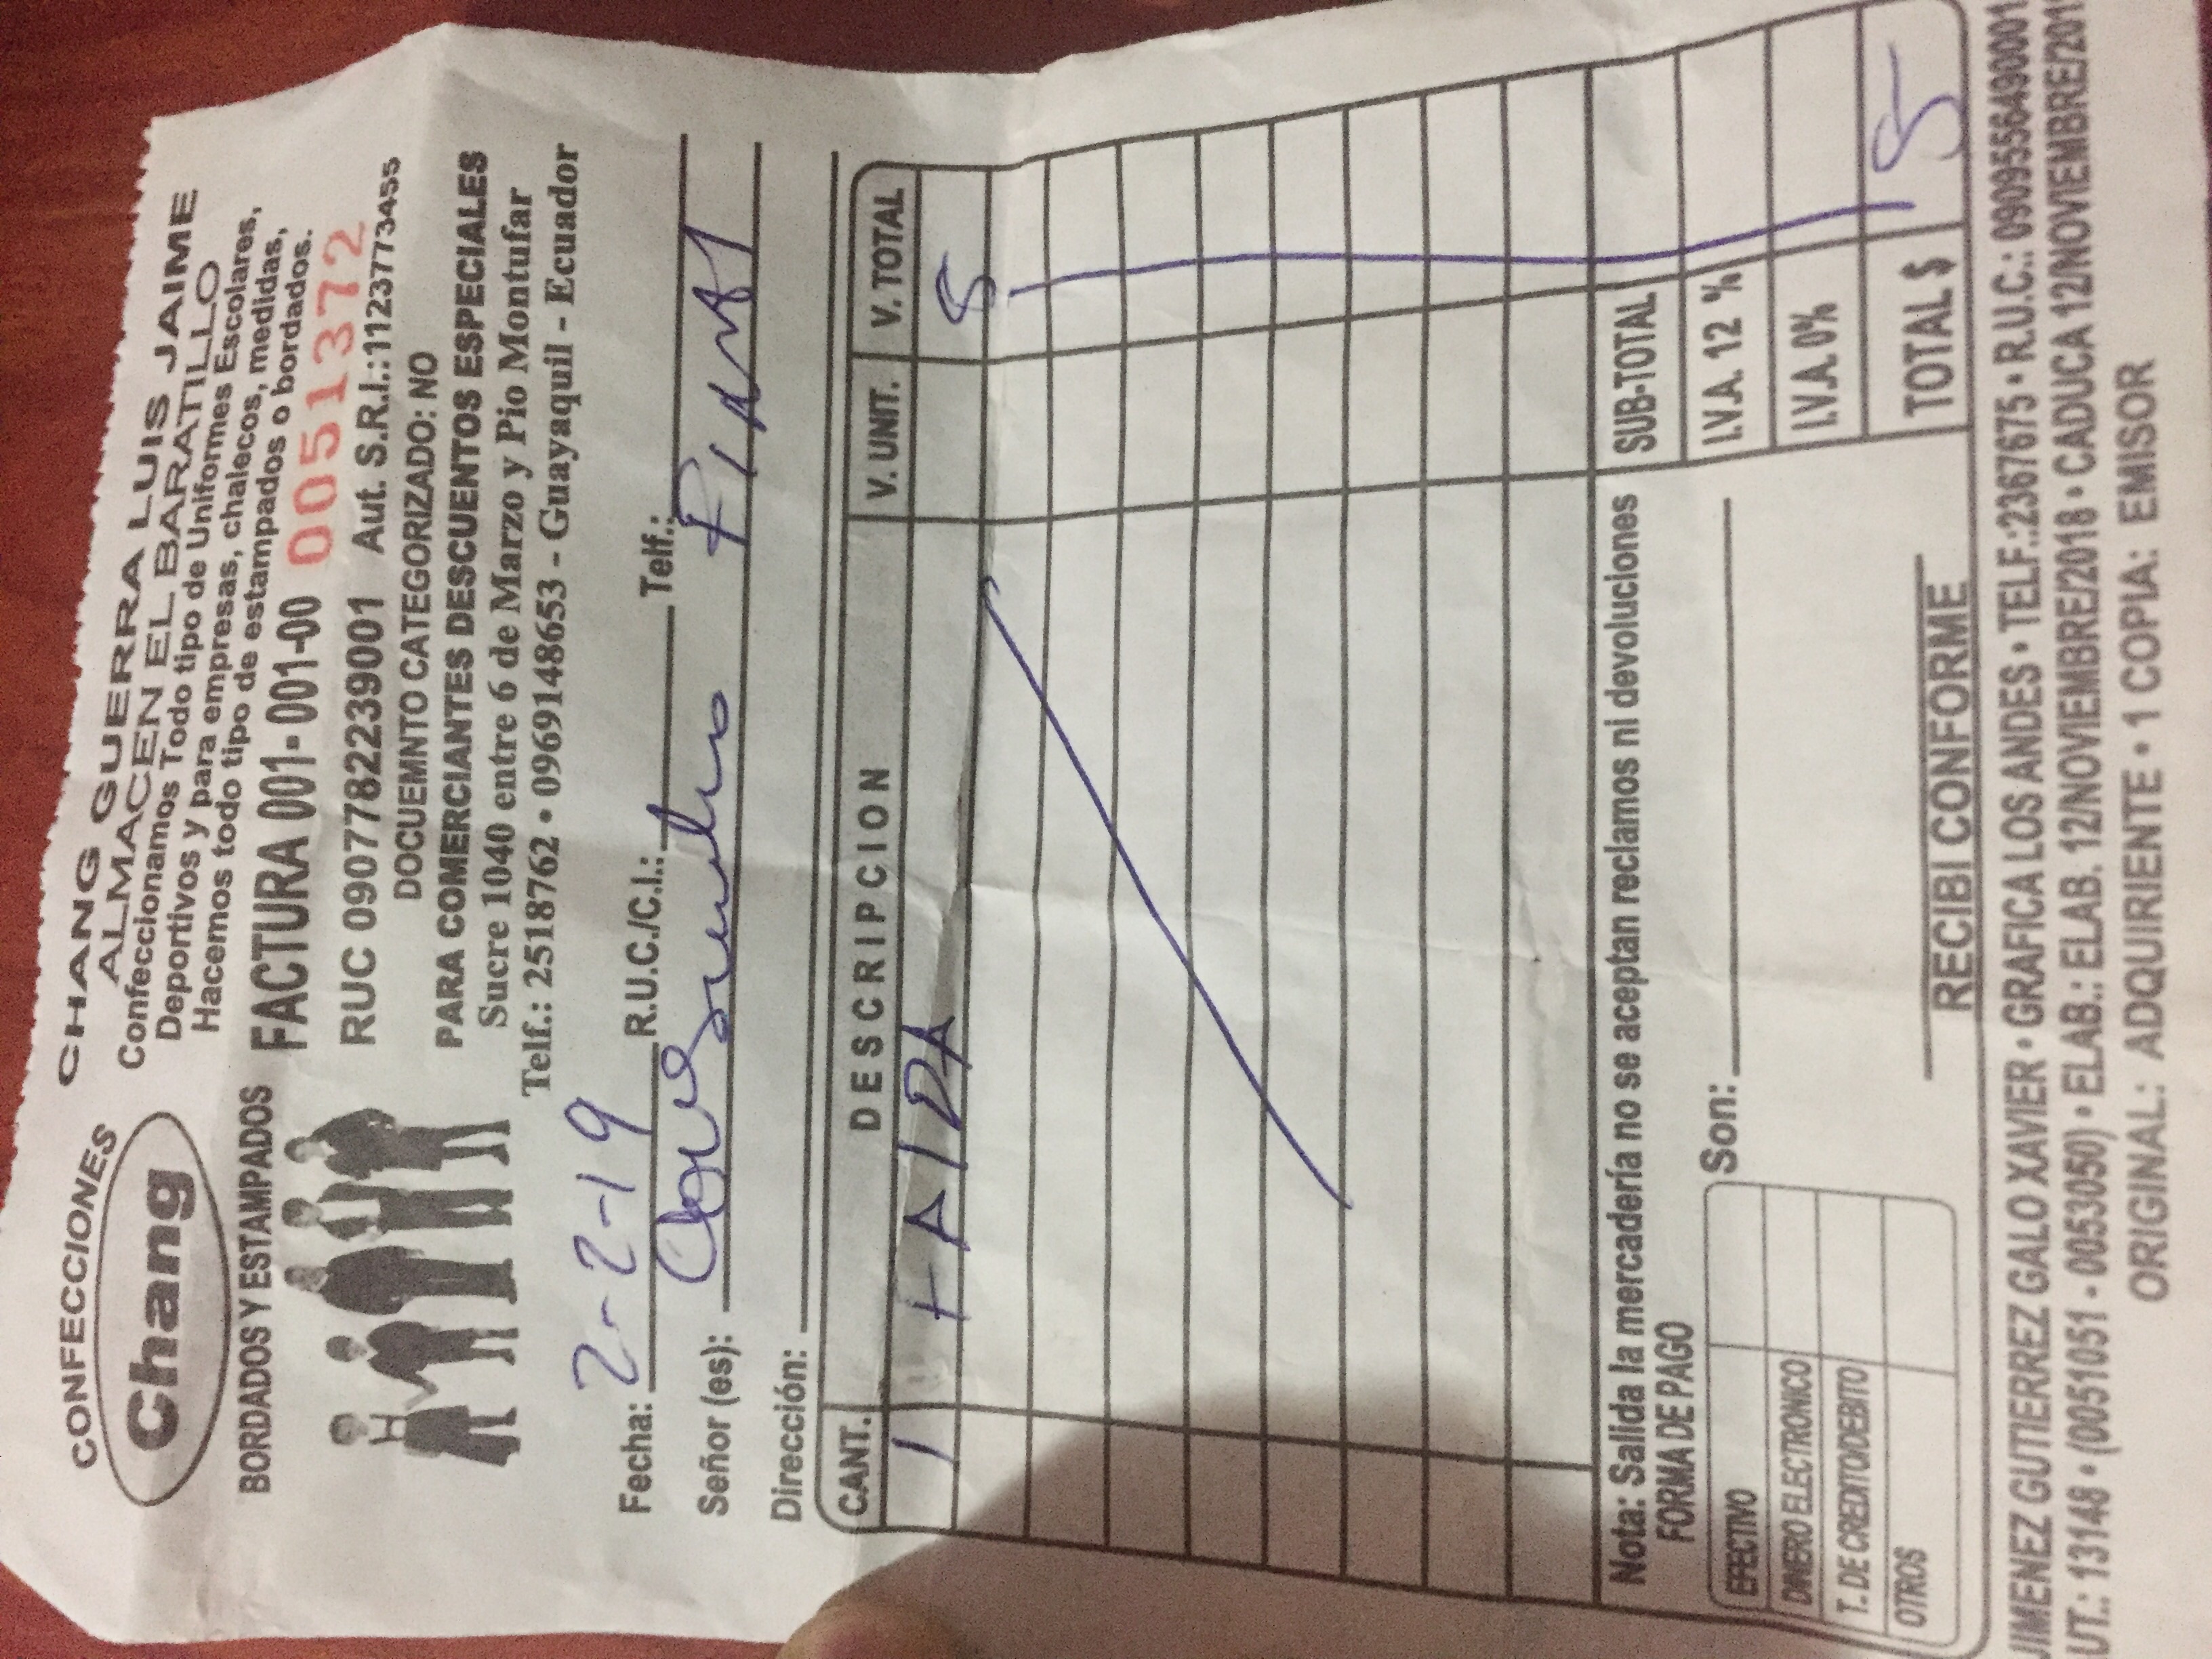 CONFECCIONES
Chang
BORDADOS Y ESTAMPADOS
CHANG GUERRA LUIS JAIME
ALMACEN EL BARATILLO
Confeccionamos Todo tipo de Uniformes Escolares,
Deportivos y para empresas, chalecos, medidas,
Hacemos todo tipo de estampados o bordados.
FACTURA 001-001-00 0051372
RUC 0907782239001 Aut. S.R.I.:1123773455
DOCUEMNTO CATEGORIZADO: NO
PARA COMERCIANTES DESCUENTOS ESPECIALES
Sucre 1040 entre 6 de Marzo y Pio Montufar
Telf.: 2518762 • 0969148653 - Guayaquil - Ecuador
Fecha: 2-2-19 R.U.C./C.I.: Telf.:
Señor (es): Consumidor FINAl
Dirección:
CANT. DESCRIPCION V. UNIT. V. TOTAL
1 FAlDA 5
Nota: Salida la mercadería no se aceptan reclamos ni devoluciones
SUB-TOTAL
FORMA DE PAGO
Son:
I.V.A. 12 %
EFECTIVO
DINERO ELECTRONICO
I.V.A. 0%
T. DE CREDITO/DEBITO
OTROS
TOTAL $ 5
RECIBI CONFORME
JIMENEZ GUTIERREZ GALO XAVIER • GRAFICA LOS ANDES • TELF.:2367675 • R.U.C.: 0909556490001
UT.: 13148 • (0051051 - 0053050) • ELAB.: ELAB. 12/NOVIEMBRE/2018 • CADUCA 12/NOVIEMBRE/201
ORIGINAL: ADQUIRIENTE • 1 COPIA: EMISOR